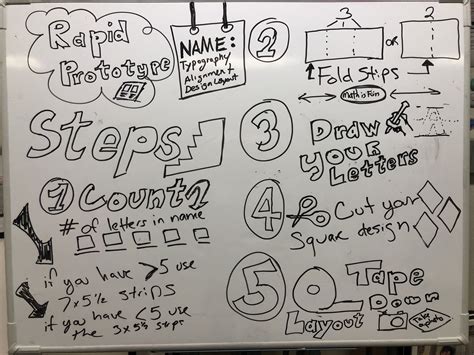 Rapid
Prototype
NAME:
Typography
Alignment
Design Layout
Steps
1 Count
# of letters in name
if you have >5 use
7x5½ strips
if you have <5 use
the 3x5½ steps
2
3 or 2
Fold Stips
math is Fun
3
Draw
your
Letters
4
Cut your
Squar design
5
Tape
Down
Layout
Take a photo